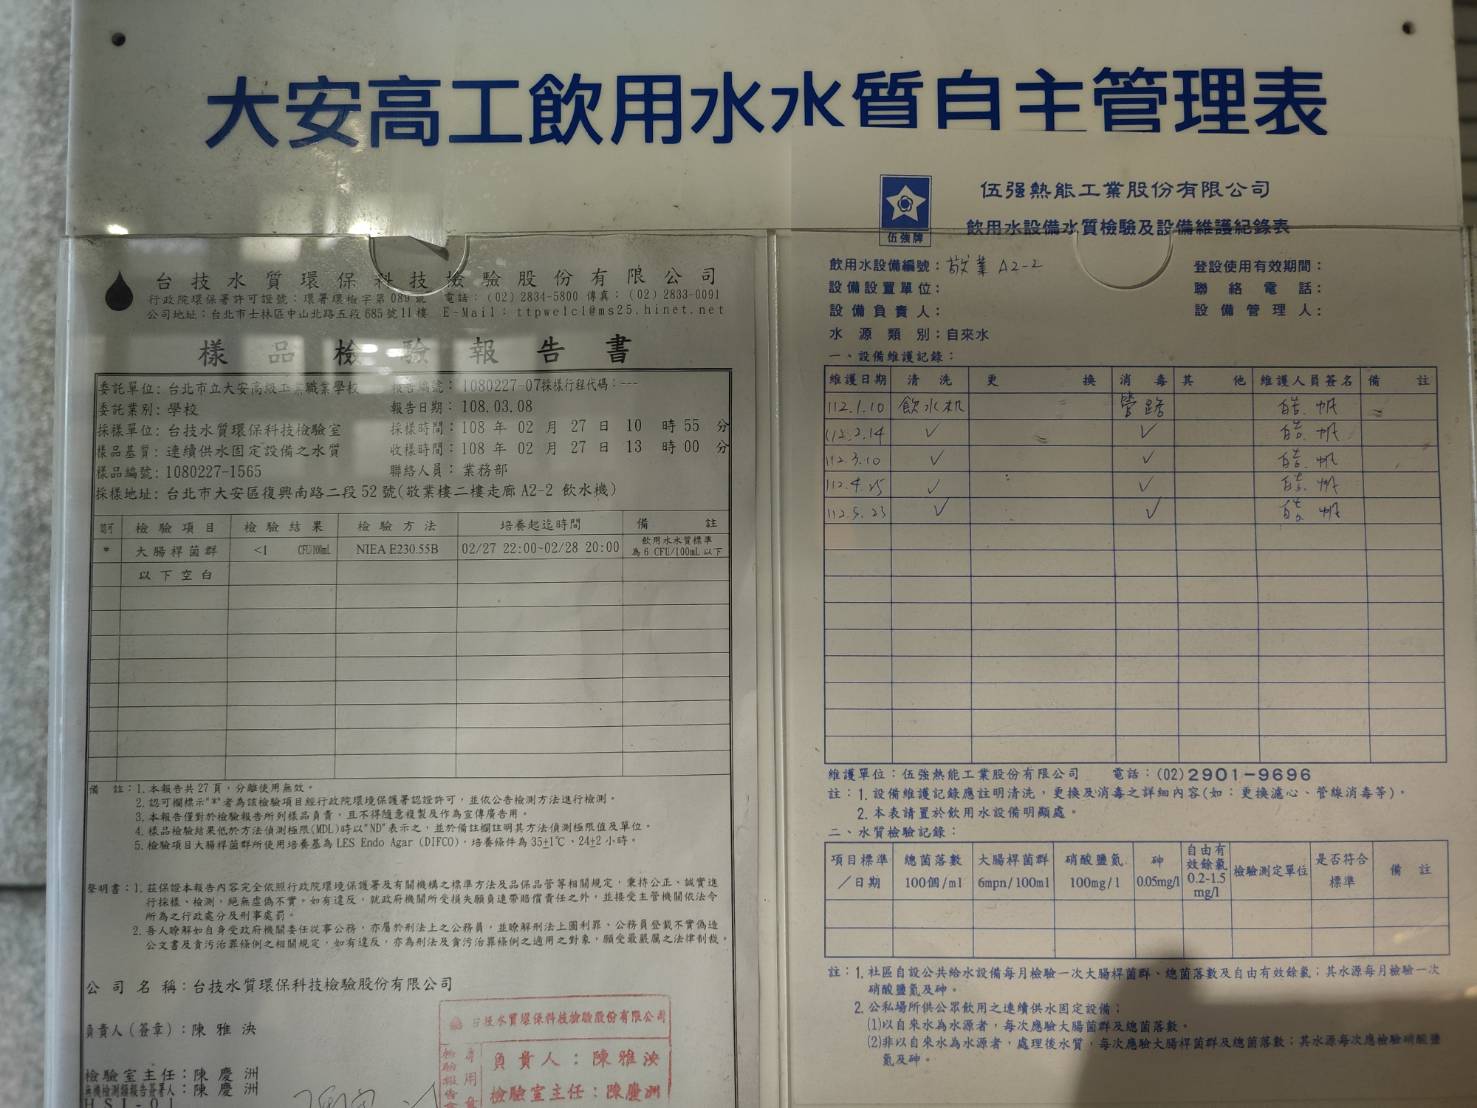 大安高工飲用水水質自主管理表
台技水質環保科技檢驗股份有限公司
行政院環保署許可證號：環署環檢字第 089 號 電話：(02) 2834-5800 傳真：(02) 2833-0091
公司地址：台北市士林區中山北路五段 685 號 11 樓 E-Mail：ttpwelcl@ms25.hinet.net
樣品檢驗報告書
委託單位：台北市立大安高級工業職業學校 報告編號：1080227-07採樣行程代碼：---
委託業別：學校 報告日期：108.03.08
採樣單位：台技水質環保科技檢驗室 採樣時間：108 年 02 月 27 日 10 時 55 分
樣品基質：連續供水固定設備之水質 收樣時間：108 年 02 月 27 日 13 時 00 分
樣品編號：1080227-1565 聯絡人員：業務部
採樣地址：台北市大安區復興南路二段 52 號(敬業樓二樓走廊 A2-2 飲水機)
認可 檢驗項目 檢驗結果 檢驗方法 培養起迄時間 備註
* 大腸桿菌群 <1 CFU/100mL NIEA E230.55B 02/27 22:00~02/28 20:00 飲用水水質標準為 6 CFU/100mL 以下
以下空白
備 註：1. 本報告共 27 頁，分離使用無效。
2. 認可欄標示"*"者為該檢驗項目經行政院環境保護署認證許可，並依公告檢測方法進行檢測。
3. 本報告僅對於檢驗報告所列樣品負責，且不得隨意複製及作為宣傳廣告用。
4. 樣品檢驗結果低於方法偵測極限(MDL)時以"ND"表示之，並於備註欄註明其方法偵測極限值及單位。
5. 檢驗項目大腸桿菌群所使用培養基為 LES Endo Agar (DIFCO)，培養條件為 35±1℃、24±2 小時。
聲明書：1. 茲保證本報告內容完全依照行政院環境保護署及有關機構之標準方法及品保品管等相關規定，秉持公正、誠實進
行採樣、檢測，絕無虛偽不實。如有違反，就政府機關所受損失願負連帶賠償責任之外，並接受主管機關依法令
所為之行政處分及刑事處罰。
2. 吾人瞭解如自身受政府機關委任從事公務，亦屬於刑法上之公務員，並瞭解刑法上圖利罪、公務員登載不實偽造
公文書及貪污治罪條例之相關規定，如有違反，亦為刑法及貪污治罪條例之適用之對象，願受最嚴厲之法律制裁。
公司名稱：台技水質環保科技檢驗股份有限公司
負責人(簽章)：陳雅泱
檢驗室主任：陳慶洲
無機檢測類報告簽署人：陳慶洲
HSI-01
台技水質環保科技檢驗股份有限公司
負責人：陳雅泱
檢驗室主任：陳慶洲
伍強牌
伍强熱能工業股份有限公司
飲用水設備水質檢驗及設備維護紀錄表
飲用水設備編號：敬業 A2-2 登設使用有效期間：
設備設置單位： 聯絡電話：
設備負責人： 設備管理人：
水源類別：自來水
一、設備維護記錄：
維護日期 清洗 更換 消毒 其他 維護人員簽名 備註
112.1.10 飲水机 管路
112.2.14 ✓ ✓
112.3.10 ✓ ✓
112.4.25 ✓ ✓
112.5.23 ✓ ✓
維護單位：伍強熱能工業股份有限公司 電話：(02)2901-9696
註：1. 設備維護記錄應註明清洗，更換及消毒之詳細內容(如：更換濾心、管線消毒等)。
2. 本表請置於飲用水設備明顯處。
二、水質檢驗記錄：
項目標準／日期 總菌落數 100個/ml 大腸桿菌群 6mpn/100ml 硝酸鹽氮 100mg/l 砷 0.05mg/l 自由有效餘氯 0.2-1.5 mg/l 檢驗測定單位 是否符合標準 備註
註：1. 社區自設公共給水設備每月檢驗一次大腸桿菌群、總菌落數及自由有效餘氯；其水源每月檢驗一次
硝酸鹽氮及砷。
2. 公私場所供公眾飲用之連續供水固定設備；
(1)以自來水為水源者，每次應驗大腸菌群及總菌落數。
(2)非以自來水為水源者，處理後水質，每次應驗大腸桿菌群及總菌落數；其水源每次應檢驗硝酸鹽
氮及砷。